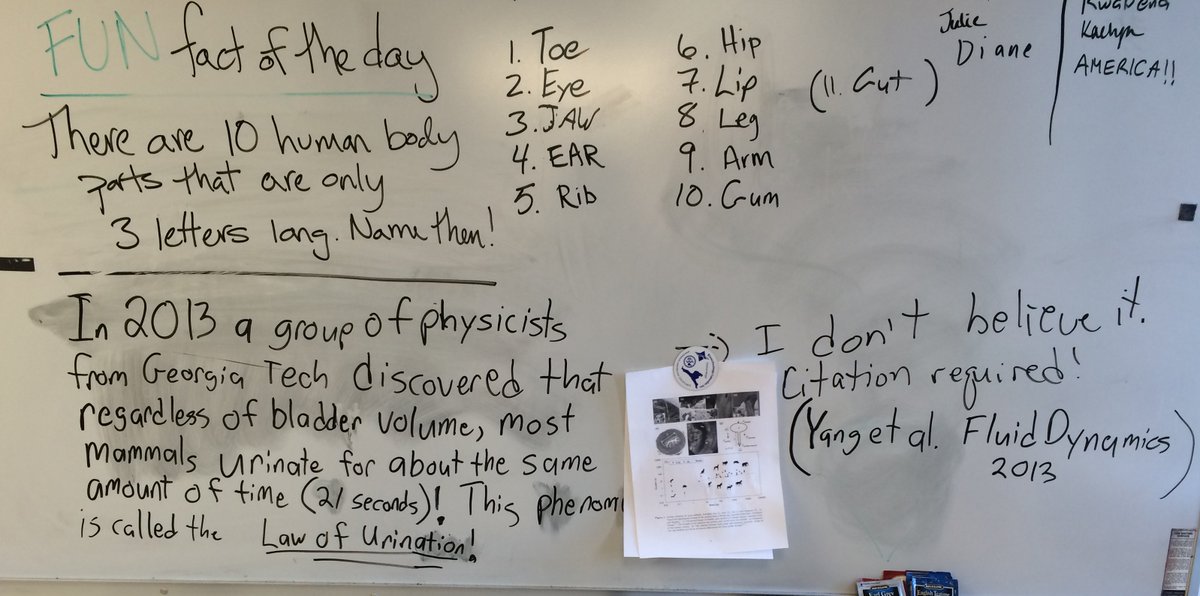 FUN fact of the day
There are 10 human body
parts that are only
3 letters long. Name then!
1. Toe
2. Eye
3. JAW
4. EAR
5. Rib
6. Hip
7. Lip
8. Leg
9. Arm
10. Gum
(11. Gut)
Julie
Diane
Kwabena
Kaelyn
AMERICA!!
In 2013 a group of physicists
from Georgia Tech discovered that
regardless of bladder volume, most
mammals urinate for about the same
amount of time (21 seconds)! This phenom
is called the Law of Urination!
I don't believe it.
Citation required!
(Yang et al. Fluid Dynamics
2013)
Earl Grey